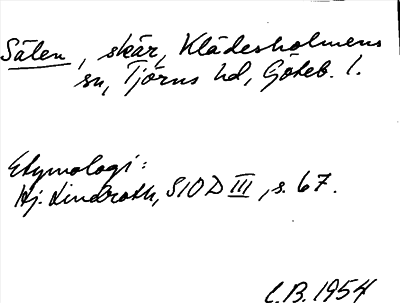 Sälen, skär, Klädesholmens
sn, Tjörns hd, Göteb. l.
Etymologi:
Hj. Lindroth, SIOD III, s. 67.
C.B. 1954